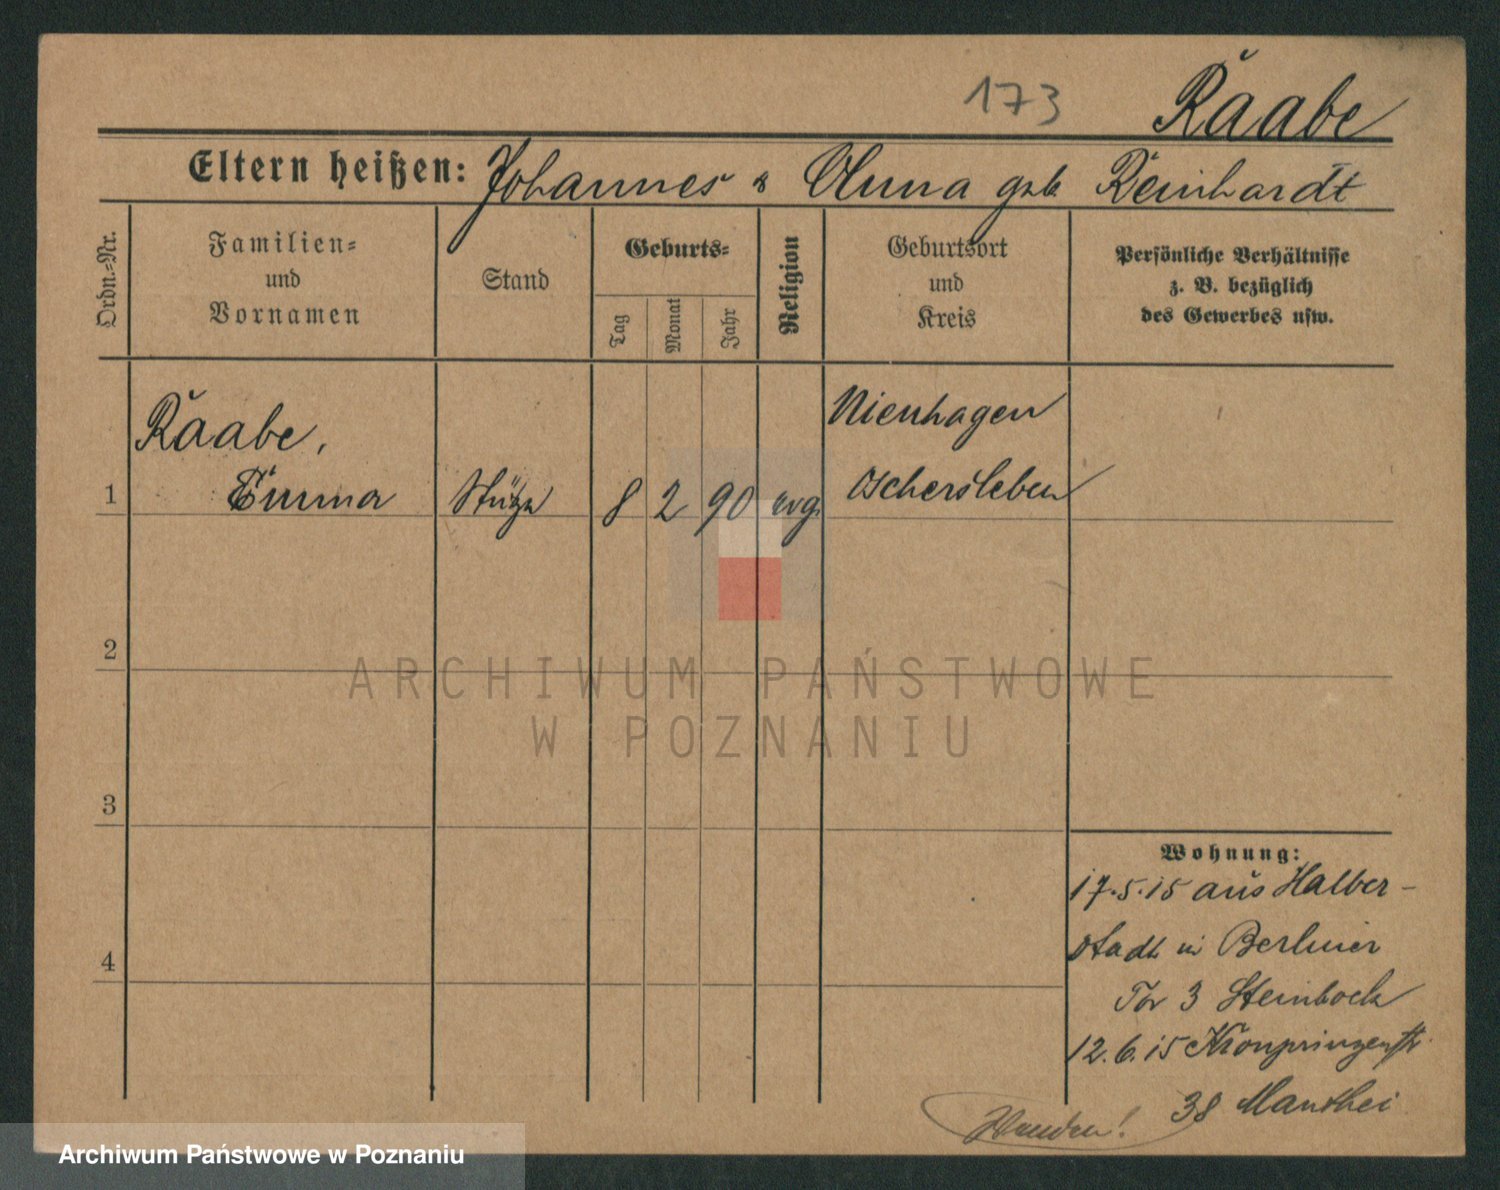 173
Raabe
Eltern heißen: Johannes & Anna geb. Reinhardt
Ordn.=Nr.
Familien=
und
Vornamen
Stand
Geburts=
Tag
Monat
Jahr
Religion
Geburtsort
und
Kreis
Persönliche Verhältnisse
z. B. bezüglich
des Gewerbes usw.
1
Raabe,
Emma
Stütze
8
2
90
evg.
Nienhagen
Oschersleben
2
3
4
Wohnung:
17.5.15 aus Halber-
stadt in Berliner
Tor 3 Steinbock
12.6.15 Kronprinzenstr.
38 Manthei
Wenden!
ARCHIWUM PAŃSTWOWE
W POZNANIU
Archiwum Państwowe w Poznaniu